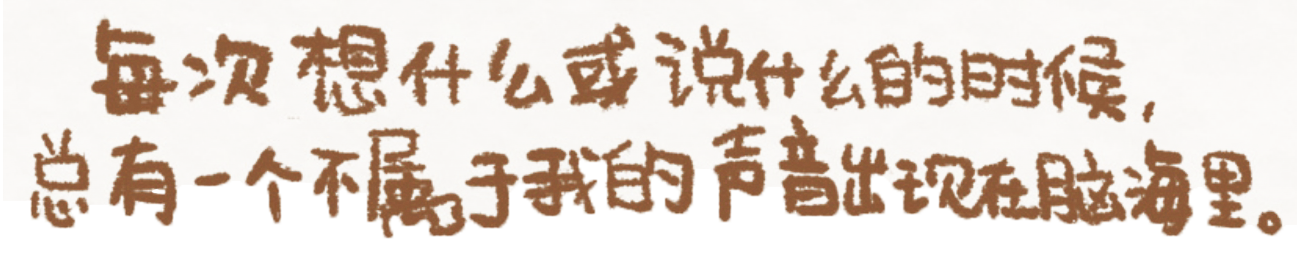 每次想什么或说什么的时候,
总有一个不属于我的声音出现在脑海里。